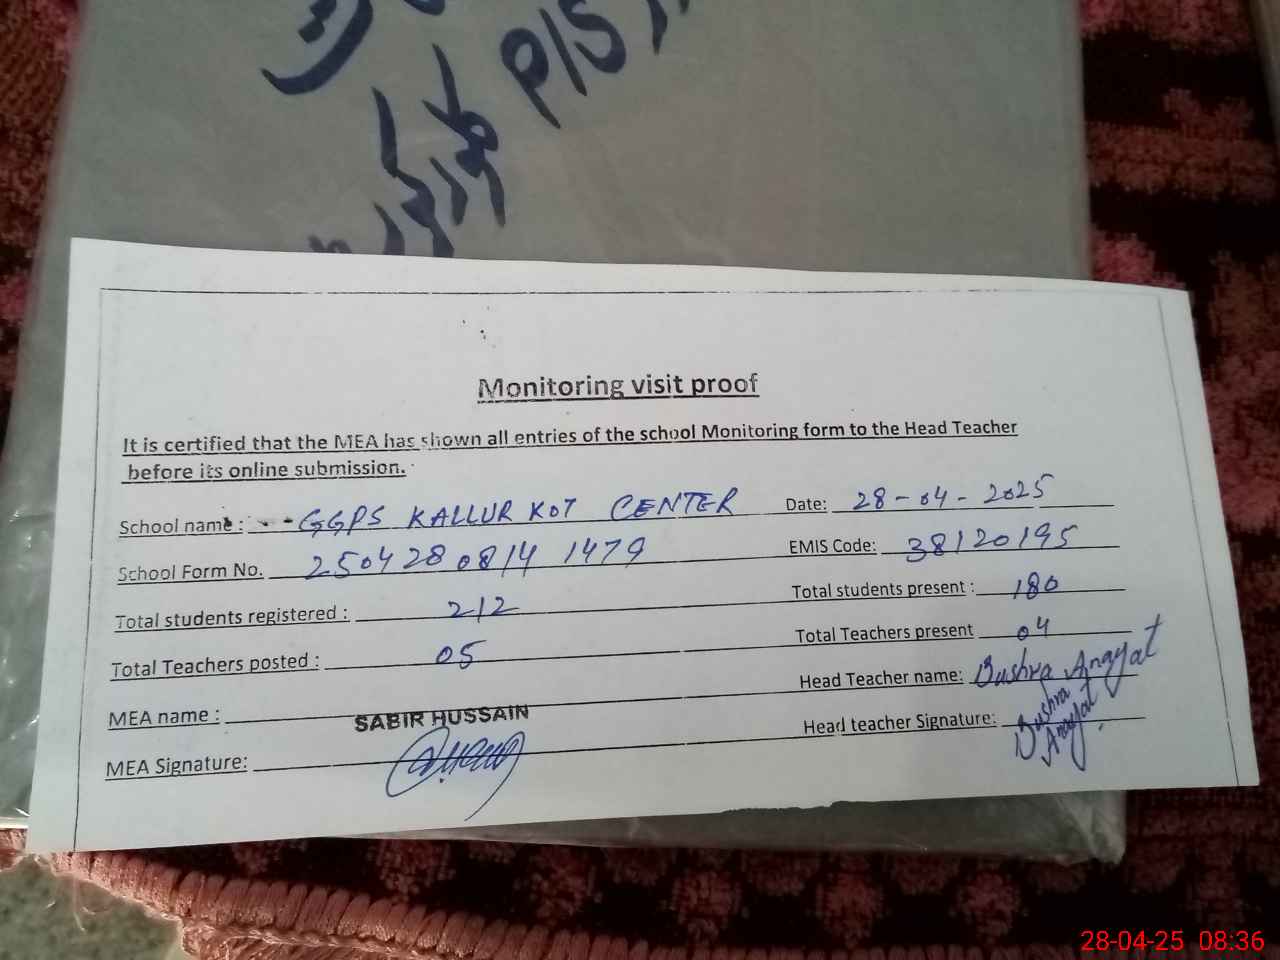 P/S
Monitoring visit proof
It is certified that the MEA has shown all entries of the school Monitoring form to the Head Teacher
before its online submission.
School name : GGPS KALLUR KOT CENTER Date: 28-04-2025
School Form No. 250428081414 79 EMIS Code: 38120195
Total students registered : 212 Total students present : 180
Total Teachers posted : 05 Total Teachers present 04
MEA name : SABIR HUSSAIN Head Teacher name: Bushra Anayat
MEA Signature: Head teacher Signature: Bushra Anayat
28-04-25 08:36